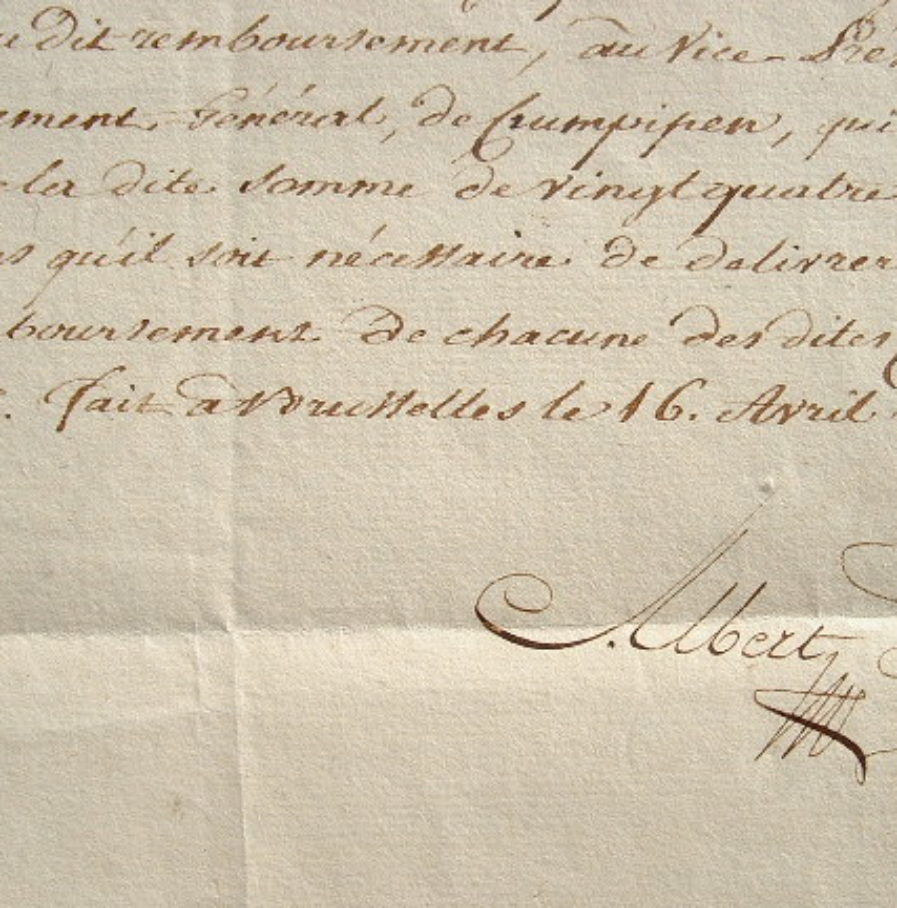 u dit remboursement, au Vice-Pré
ement Général, de Crumpipen, qui
la dite somme de vingt quatre
s qu'il soit nécessaire de delivrer
boursement de chacune des dites
Fait a Bruxelles le 16. Avril
Albert